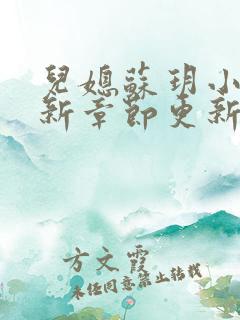 兒媳蘇玥小
新章節更新
方文霞
未經同意禁止轉載